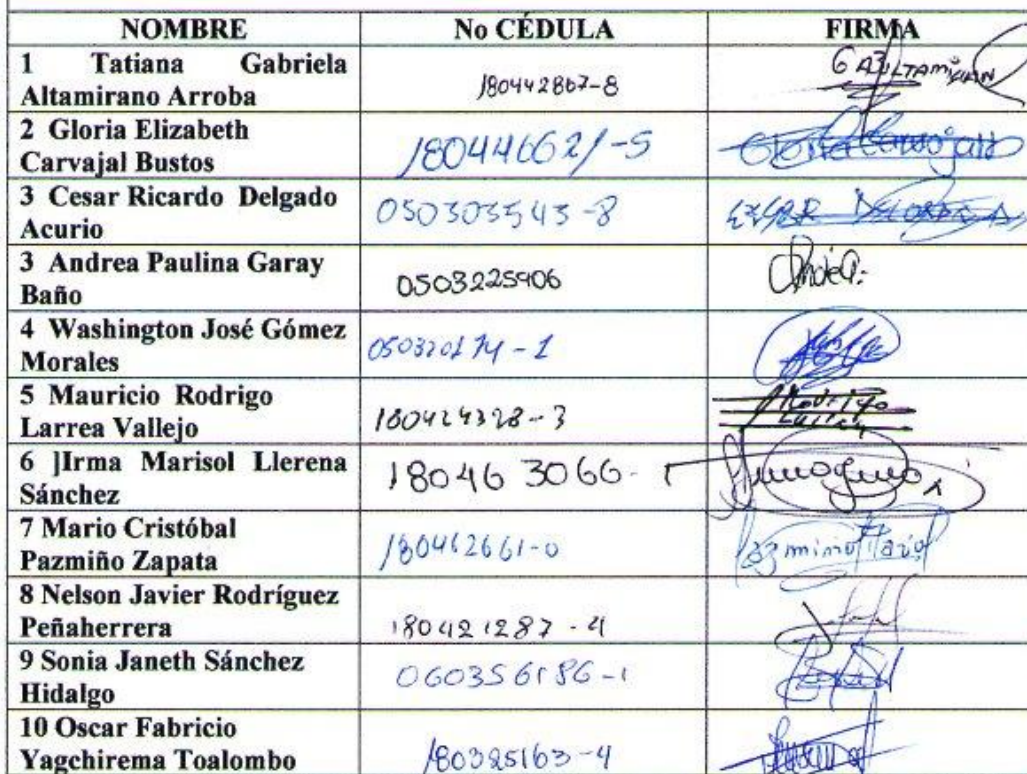 NOMBRE No CÉDULA FIRMA
1 Tatiana Gabriela
Altamirano Arroba
180442867-8
2 Gloria Elizabeth
Carvajal Bustos
180446621-5 Gloria Carvajal B
3 Cesar Ricardo Delgado
Acurio
050303543-8
3 Andrea Paulina Garay
Baño
0503225906
4 Washington José Gómez
Morales
5 Mauricio Rodrigo
Larrea Vallejo
180424328-3 Rodrigo
6 ]Irma Marisol Llerena
Sánchez
180463066-
7 Mario Cristóbal
Pazmiño Zapata
180462661-0 Pazmiño Mario
8 Nelson Javier Rodríguez
Peñaherrera
180421287-4
9 Sonia Janeth Sánchez
Hidalgo
060356186-1
10 Oscar Fabricio
Yagchirema Toalombo
180325163-4